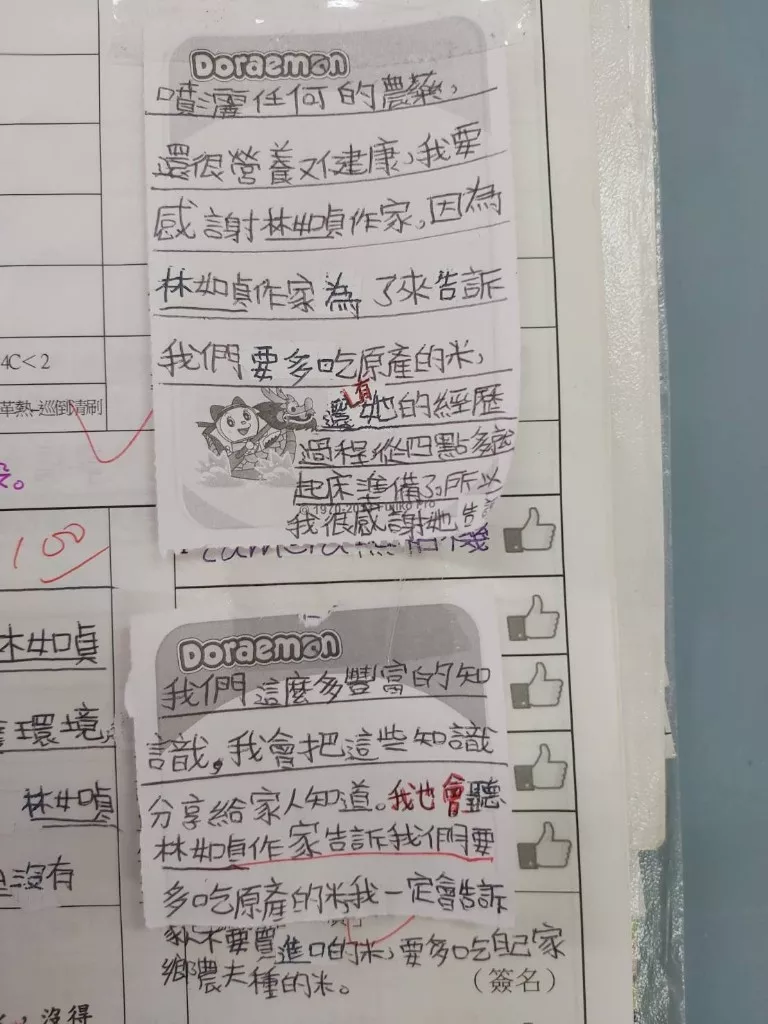 Doraemon
噴灑任何的農藥，
還很營養又健康，我要
感謝林如貞作家，因為
林如貞作家為了來告訴
我們要多吃原產的米，
還有她的經歷
過程從四點多就
起床準備了所以
我很感謝她告訴
4C<2
100
林如貞
環境，
林如貞
沒有
Doraemon
我們這麼多豐富的知
識，我會把這些知識
分享給家人知道。我也會聽
林如貞作家告訴我們要
多吃原產的米，我一定會告訴
不要買進口的米，要多吃自己家
鄉農夫種的米。
（簽名）
，沒得